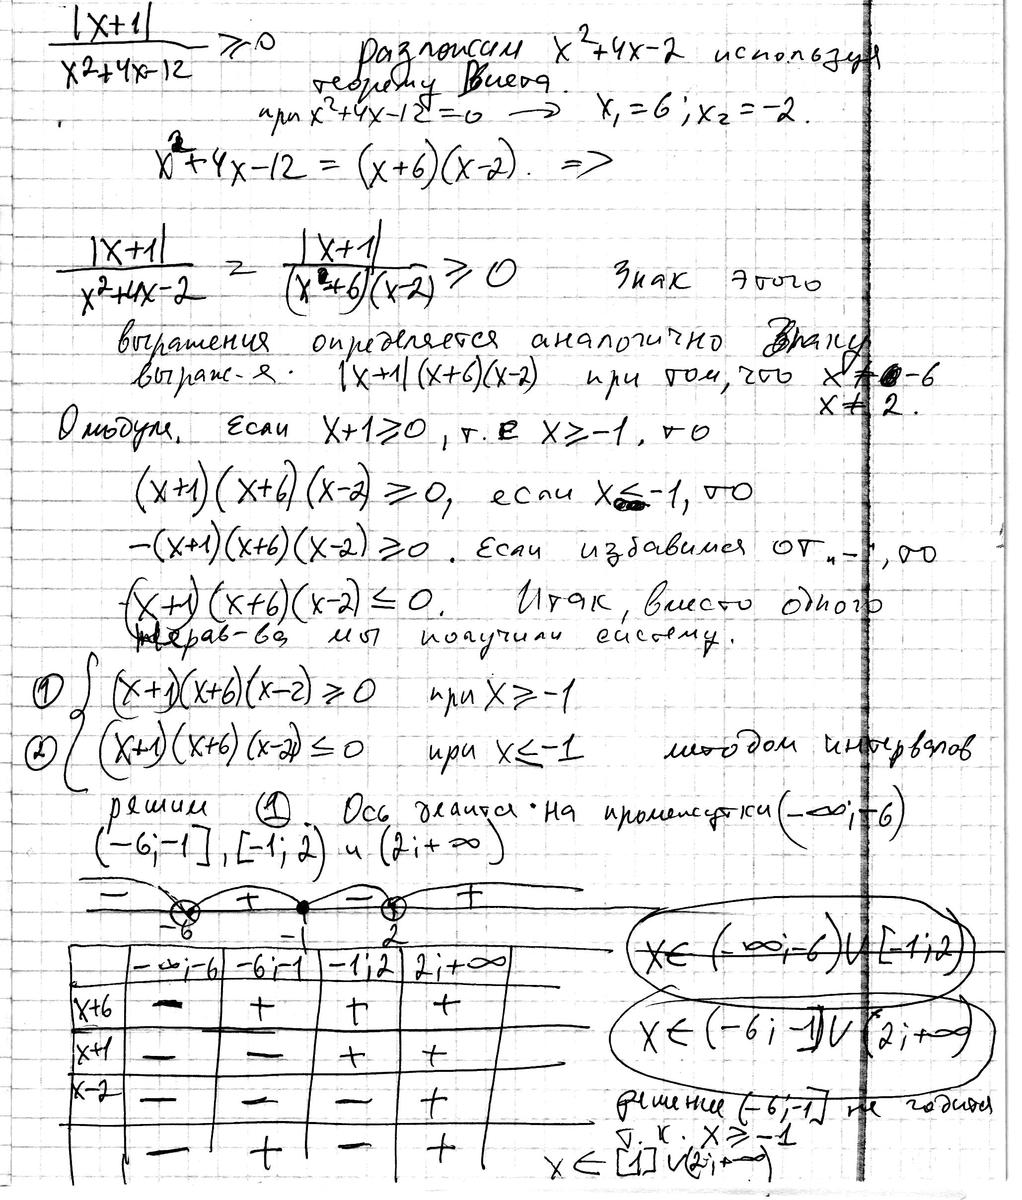 |x+1|/(x²+4x-12) ≥ 0 Разложим x²+4x-2 используя
теорему Виета.
при x²+4x-12=0 → x₁=6; x₂=-2.
x²+4x-12 = (x+6)(x-2). =>
|x+1|/(x²+4x-2) = |x+1|/((x²+6)(x-2)) ≥ 0 Знак этого
выражения определяется аналогично знаку
выраж-я. |x+1|(x+6)(x-2) при том, что x ≠ -6
x ≠ 2.
О модуле. Если x+1≥0, т.е x≥-1, то
(x+1)(x+6)(x-2) ≥ 0, если x≤-1, то
-(x+1)(x+6)(x-2) ≥ 0. Если избавимся от „-“, то
(x+1)(x+6)(x-2) ≤ 0. Итак, вместо одного
нерав-ва мы получили систему.
① { (x+1)(x+6)(x-2) ≥ 0 при x ≥ -1
② { (x+1)(x+6)(x-2) ≤ 0 при x ≤ -1 методом интервалов
решим ①. Ось делится на промежутки (-∞;-6)
(-6;-1], [-1;2) и (2;+∞)
- + - +
-6 -1 2
-∞;-6 -6;-1 -1;2 2;+∞
x+6 - + + +
x+1 - - + +
x-2 - - - +
- + - +
x∈ (-∞;-6)∪[-1;2)
x∈ (-6;-1]∪(2;+∞)
решение (-6;-1] не годится
т.к. x ≥ -1
x ∈ [1]∪(2;+∞)